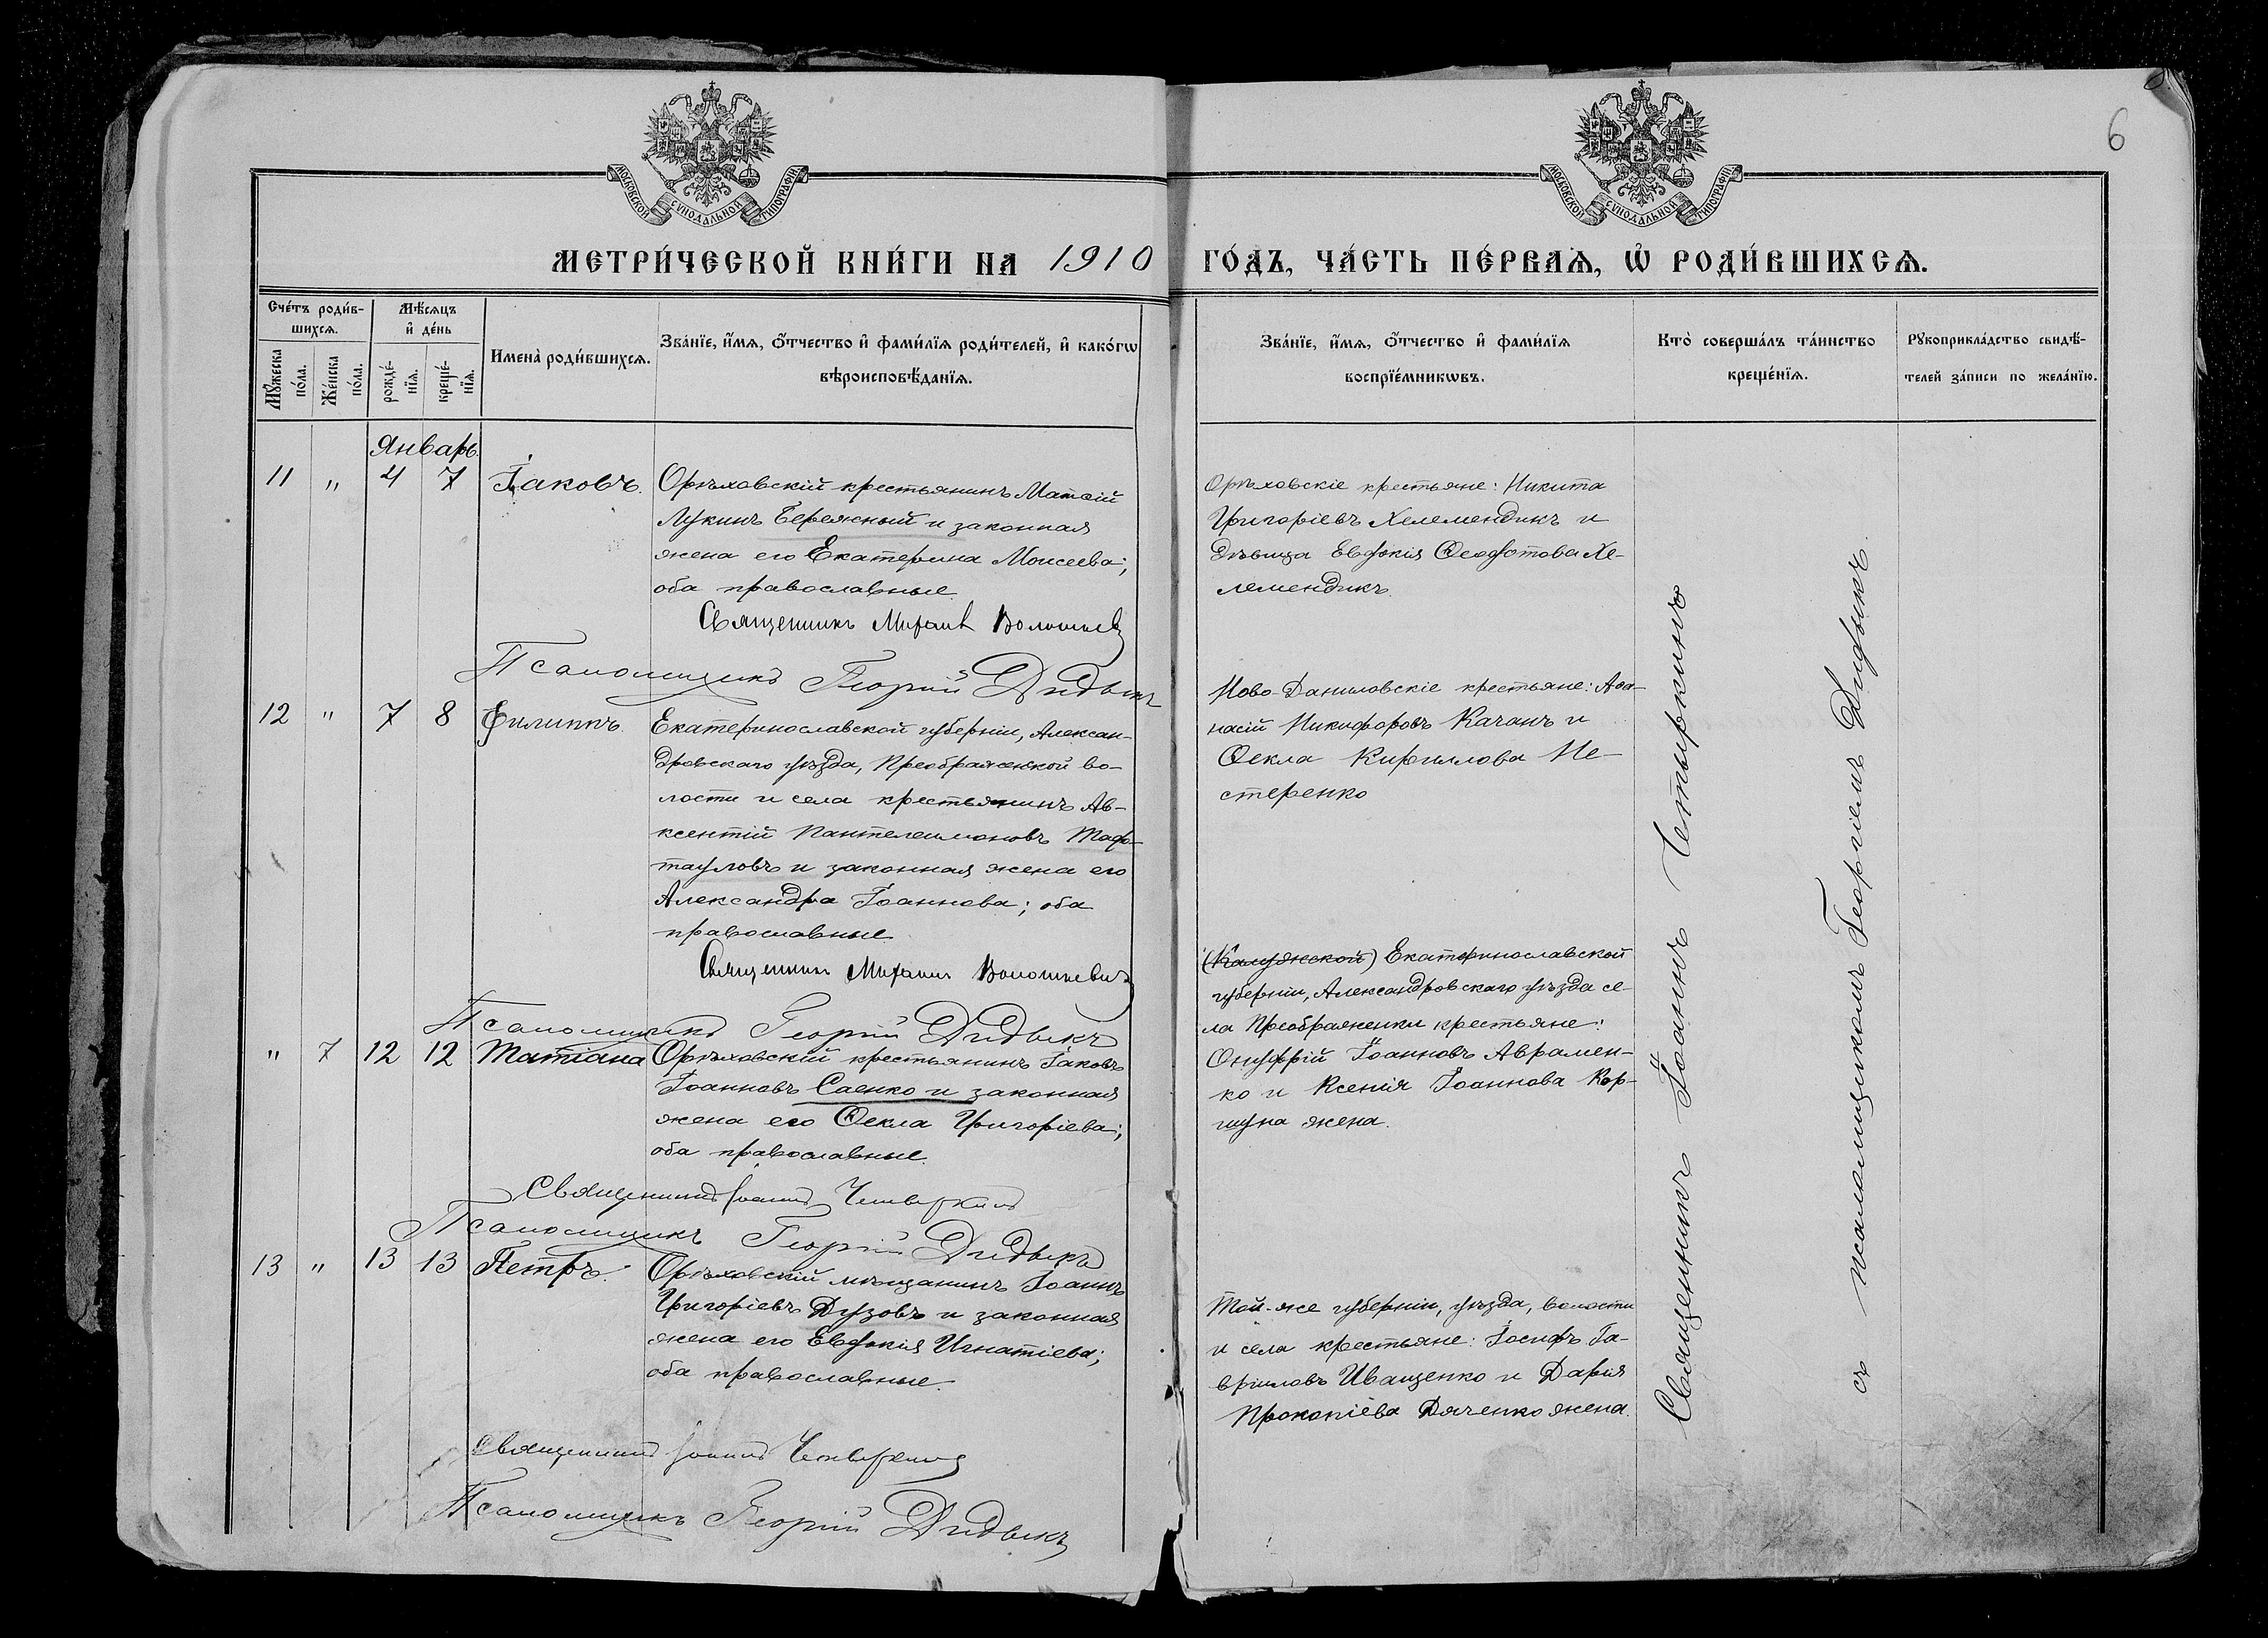 6
МОСКОВСКОЙ СѴНОДАЛЬНОЙ ТИПОГРАФІИ
МОСКОВСКОЙ СѴНОДАЛЬНОЙ ТИПОГРАФІИ
МЕТРИ́ЧЕСКОЙ КНИ́ГИ НА 1910
ГО́ДЪ, ЧА́СТЬ ПЕ́РВАѦ, Ѡ҆ РОДИ́ВШИХСѦ.
Сче́тъ роди́в-
шихсѧ.
Мꙋ́жеска по́ла.
Же́нска по́ла.
Мѣ́сѧцъ
и҆ де́нь
рожде́-
нїѧ.
креще́-
нїѧ.
Имена̀ роди́вшихсѧ.
Зва́нїе, и҆́мѧ, ѻ҆́тчество и҆ фами́лїѧ роди́телей, и҆ како́гѡ
вѣроисповѣ́данїѧ.
Зва́нїе, и҆́мѧ, ѻ҆́тчество и҆ фами́лїѧ
воспрїе́мникѡвъ.
Кто̀ соверша́лъ та́инство
креще́нїѧ.
Рꙋкоприкла́дство свидѣ́-
телей за́писи по жела́нїю.
Январь.
11 " 4 7 Іаковъ.
Орѣховскій крестьянинъ Матѳій
Лукинъ Бережный и законная
жена его Екатерина Моисеева;
оба православные.
Священникъ Михаил
Псаломщикъ Георгій Дидыкъ
Орѣховскіе крестьяне: Никита
Григоріевъ Хелемендикъ и
дѣвица Евдокія Ѳеодотова Хе-
лемендикъ.
12 " 7 8 Филиппъ.
Екатеринославской губерніи, Алексан-
дровскаго уѣзда, Преображенской во-
лости и села крестьянинъ Ав-
ксентій Пантелеимоновъ
и законная жена его
Александра Іоаннова; оба
православные
Священник Михаил
Псаломщикъ Георгій Дидыкъ
Ново-Даниловскіе крестьяне: Аѳа-
насій Никифоровъ Качанъ и
Ѳекла Кириллова Не-
стеренко
" 7 12 12 Татіана
Орѣховскій крестьянинъ Іаковъ
Іоанновъ Саенко и законная
жена его Ѳекла Григоріева;
оба православные.
Священникъ Іоаннъ
Псаломщикъ Георгій Дидыкъ
(Калужской) Екатеринославской
губерніи, Александровскаго уѣзда се-
ла Преображенки крестьяне:
Онуфрій Іоанновъ Авраmен-
ко и Ксенія Іоаннова Кор-
шуна жена.
13 " 13 13 Петръ.
Орѣховскій мѣщанинъ Іоаннъ
Григоріевъ Дузовъ и законная
жена его Евдокія Игнатіева;
оба православные.
Священникъ Іоаннъ
Псаломщикъ Георгій Дидыкъ
Той-же губерніи, уѣзда, волости
и села крестьяне: Іосифъ Га-
вріиловъ Иващенко и Дарія
Прокопіева Дяченко жена.
Священникъ Іоаннъ
съ псаломщикомъ Георгіемъ Дидыкъ.